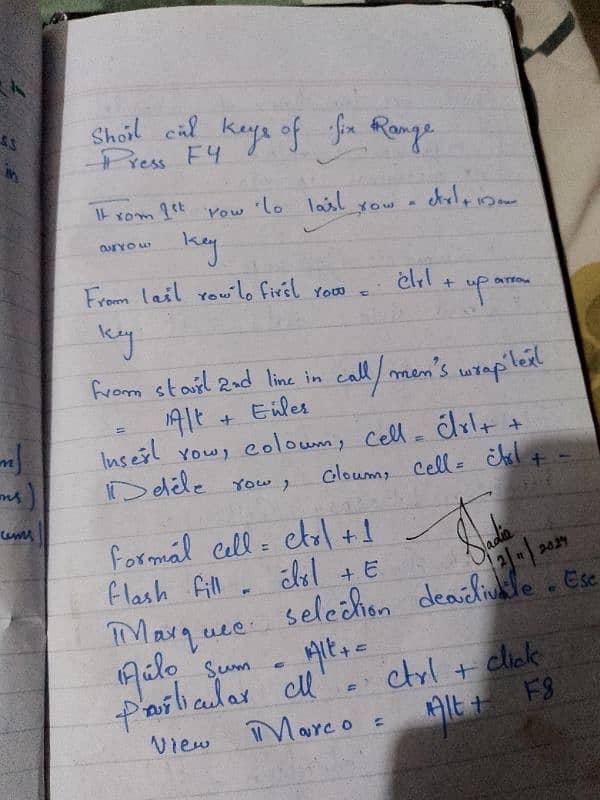 Short cut keys of fix Range
Press F4
From 1st row to last row = ctrl + Down
arrow key
From last row to first row = ctrl + up arrow
key
from start 2nd line in call/men's wrap text
= Alt + Enter
Insert row, coloum, cell = ctrl + +
Delete row, Cloum, cell = ctrl + -
Format cell = ctrl + 1
flash fill = ctrl + E
Marquee selection deactivate = Esc
Auto sum = Alt + =
Particular cell = ctrl + click
View Marco = Alt + F8
Sadia
12/11/2024
ss
in